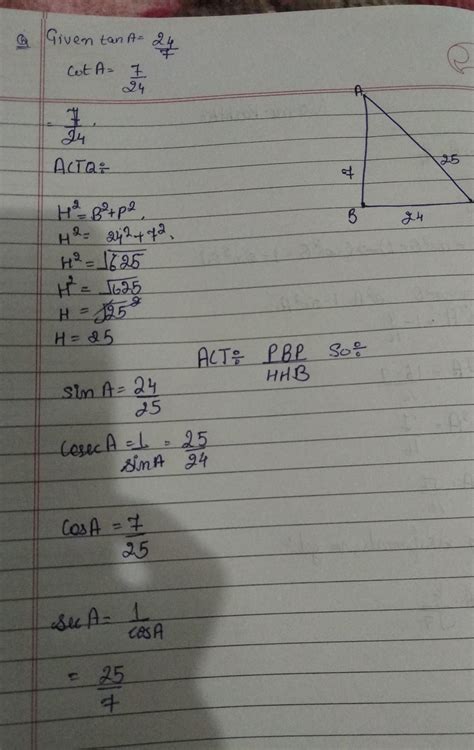 Q Given tanA = 24/7
cot A = 7/24
= 7/24.
ACTQ÷
H² = B²+P².
H² = 24²+7².
H² = √625
H² = √625
H = √25²
H = 25
ACT÷ PBP/HHB So÷
sin A = 24/25
CosecA = 1/sinA = 25/24
CosA = 7/25
secA = 1/cosA
= 25/7
A
7
25
B
24